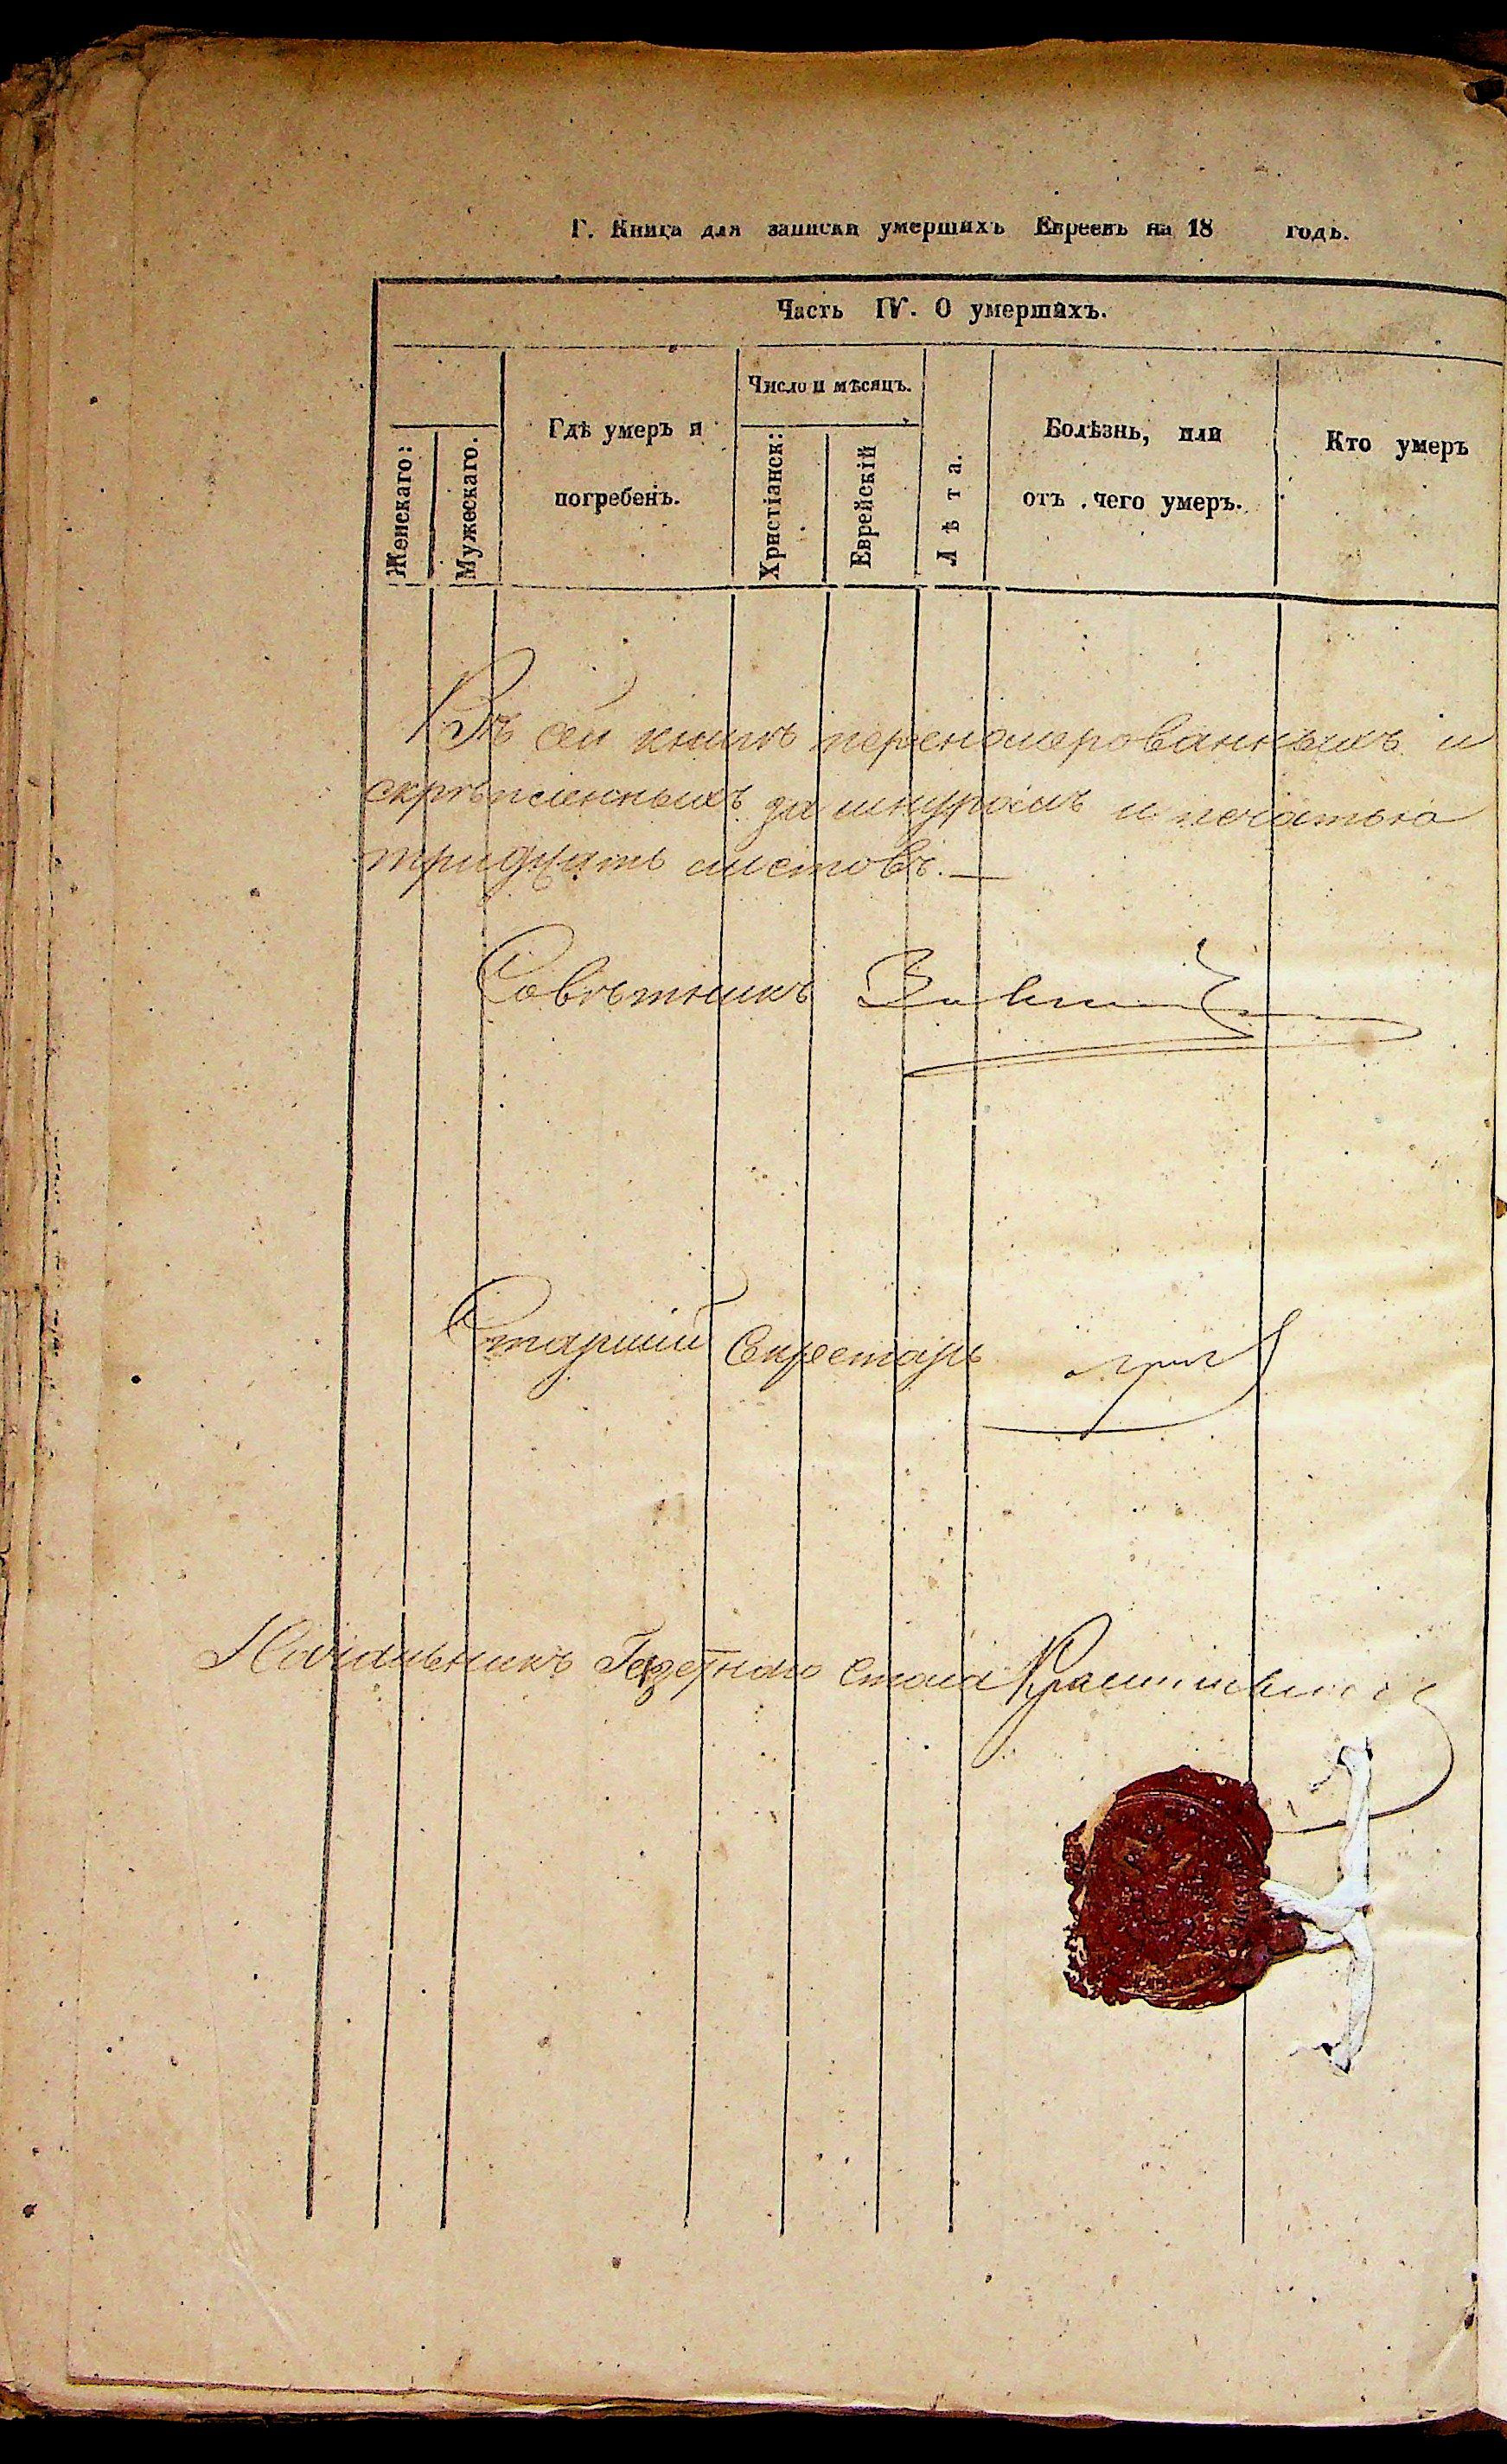 Г. Книга для записки умершихъ Евреевъ на 18 годъ.
Часть IV. О умершихъ.
Женскаго:
Мужескаго.
Гдѣ умеръ и
погребенъ.
Число и мѣсяцъ.
Христіанск:
Еврейскій
Лѣта.
Болѣзнь, или
отъ чего умеръ.
Кто умеръ
Въ сей книгѣ перенумерованныхъ и
скрѣпленныхъ за шнуромъ и печатью
тридцать листовъ.—
Совѣтникъ
Старшій Секретарь
Начальникъ Газетнаго Стола